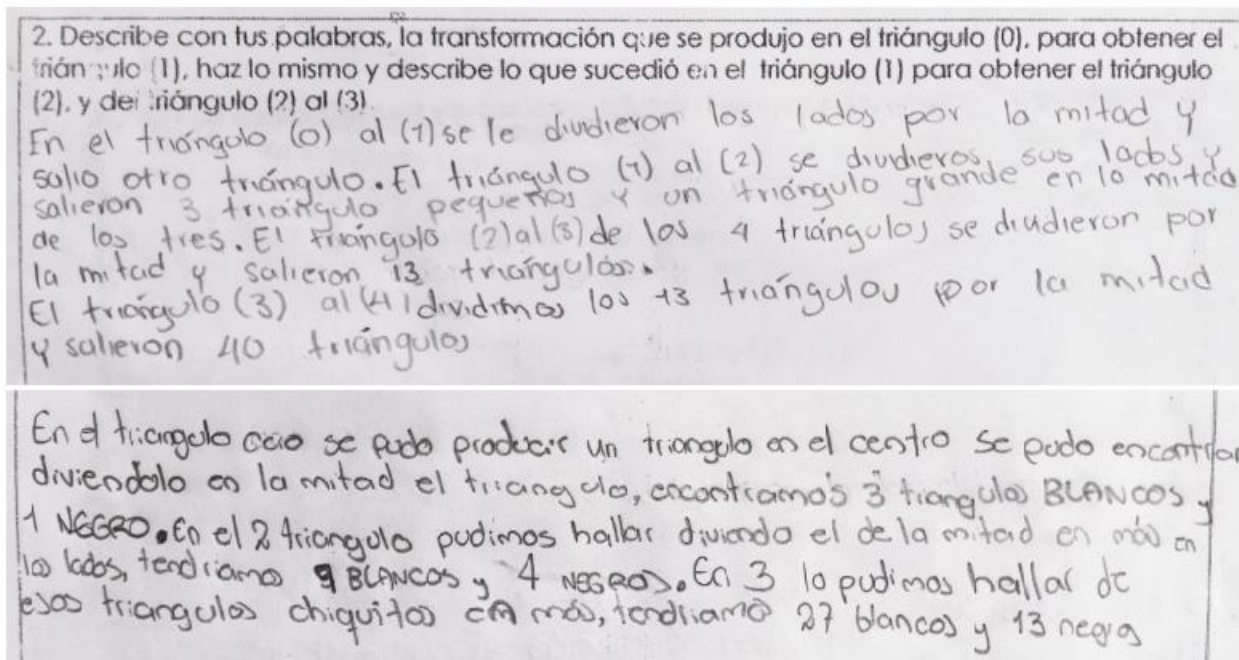 2. Describe con tus palabras, la transformación que se produjo en el triángulo (0), para obtener el
triángulo (1), haz lo mismo y describe lo que sucedió en el triángulo (1) para obtener el triángulo
(2), y del triángulo (2) al (3).
En el triángulo (0) al (1) se le dividieron los lados por la mitad y
salio otro triángulo. El triángulo (1) al (2) se dividieros sus lados y
salieron 3 triángulo pequeños y un triángulo grande en la mitad
de los tres. El triángulo (2) al (3) de los 4 triángulos se dividieron por
la mitad y salieron 13 triángulos.
El triángulo (3) al (4) dividimos los 13 triángulos por la mitad
y salieron 40 triángulos
En el triangulo cero se pudo producir un triangulo en el centro se pudo encontrar
diviendolo en la mitad el triangulo, encontramos 3 triangulos BLANCOS y
1 NEGRO. En el 2 triangulo pudimos hallar diviendo el de la mitad en más en
los lados, tendriamos 9 BLANCOS y 4 NEGROS. En 3 lo pudimos hallar de
esos triangulos chiquitos en más, tendriamo 27 blancos y 13 negros